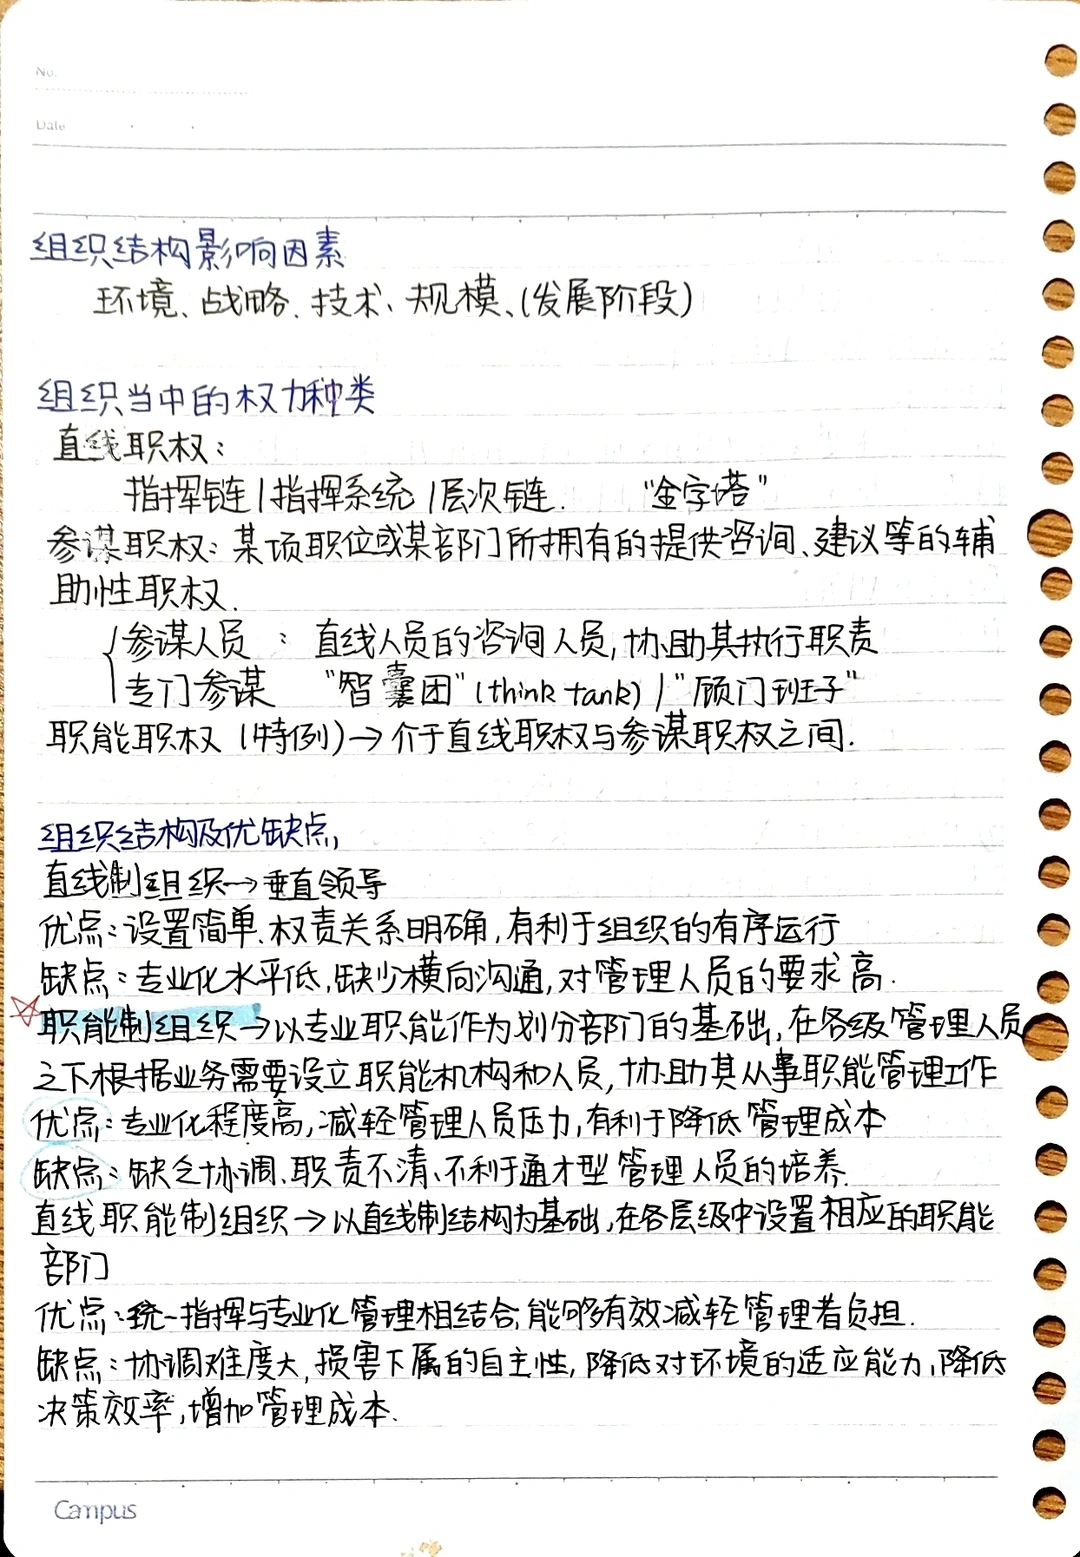 No.
Date
组织结构影响因素
环境、战略、技术、规模、(发展阶段)
组织当中的权力种类
直线职权：
指挥链/指挥系统/层次链. “金字塔”
参谋职权：某项职位或某部门所拥有的提供咨询、建议等的辅
助性职权.
参谋人员 ： 直线人员的咨询人员,协助其执行职责
专门参谋 “智囊团”(think tank) / “顾门班子”
职能职权 (特例)→介于直线职权与参谋职权之间.
组织结构及优缺点,
直线制组织→垂直领导
优点：设置简单、权责关系明确,有利于组织的有序运行
缺点：专业化水平低,缺少横向沟通,对管理人员的要求高.
☆职能制组织→以专业职能作为划分部门的基础,在各级管理人员
之下根据业务需要设立职能机构和人员,协助其从事职能管理工作
优点：专业化程度高,减轻管理人员压力,有利于降低管理成本
缺点：缺乏协调、职责不清、不利于通才型管理人员的培养.
直线职能制组织→以直线制结构为基础,在各层级中设置相应的职能
部门
优点：统一指挥与专业化管理相结合;能够有效减轻管理者负担.
缺点：协调难度大,损害下属的自主性,降低对环境的适应能力,降低
决策效率,增加管理成本.
Campus